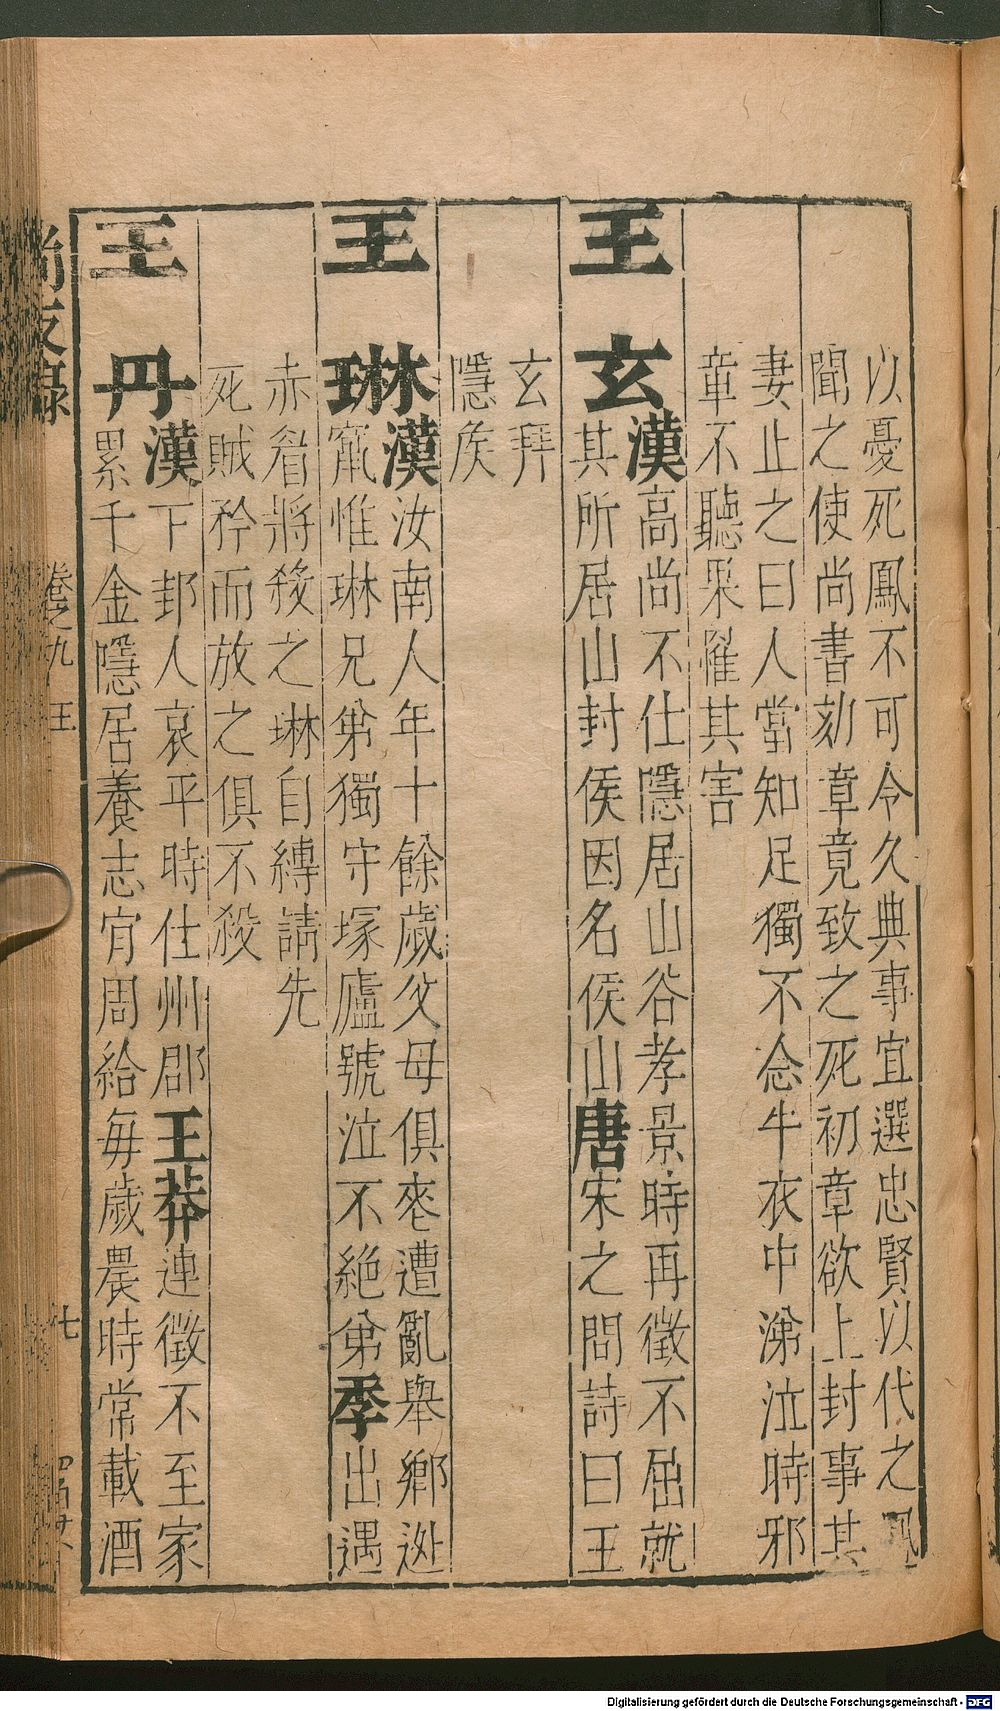 以憂死鳳不可令久典事宜選忠賢以代之鳳
聞之使尚書劾章竟致之死初章欲上封事其
妻止之曰人當知足獨不念牛衣中涕泣時邪
章不聽果罹其害
王玄漢高尚不仕隱居山谷孝景時再徵不屈就
其所居山封侯因名侯山唐宋之問詩曰王
玄拜
隱侯
王琳漢汝南人年十餘歲父母俱喪遭亂舉鄉逃
竄惟琳兄弟獨守塚廬號泣不絕弟季出遇
赤眉將殺之琳自縛請先
死賊矜而放之俱不殺
王丹漢下邽人哀平時仕州郡王莽連徵不至家
累千金隱居養志肯周給每歲農時常載酒
尚友錄 卷之九 王 七
Digitalisierung gefördert durch die Deutsche Forschungsgemeinschaft - DFG